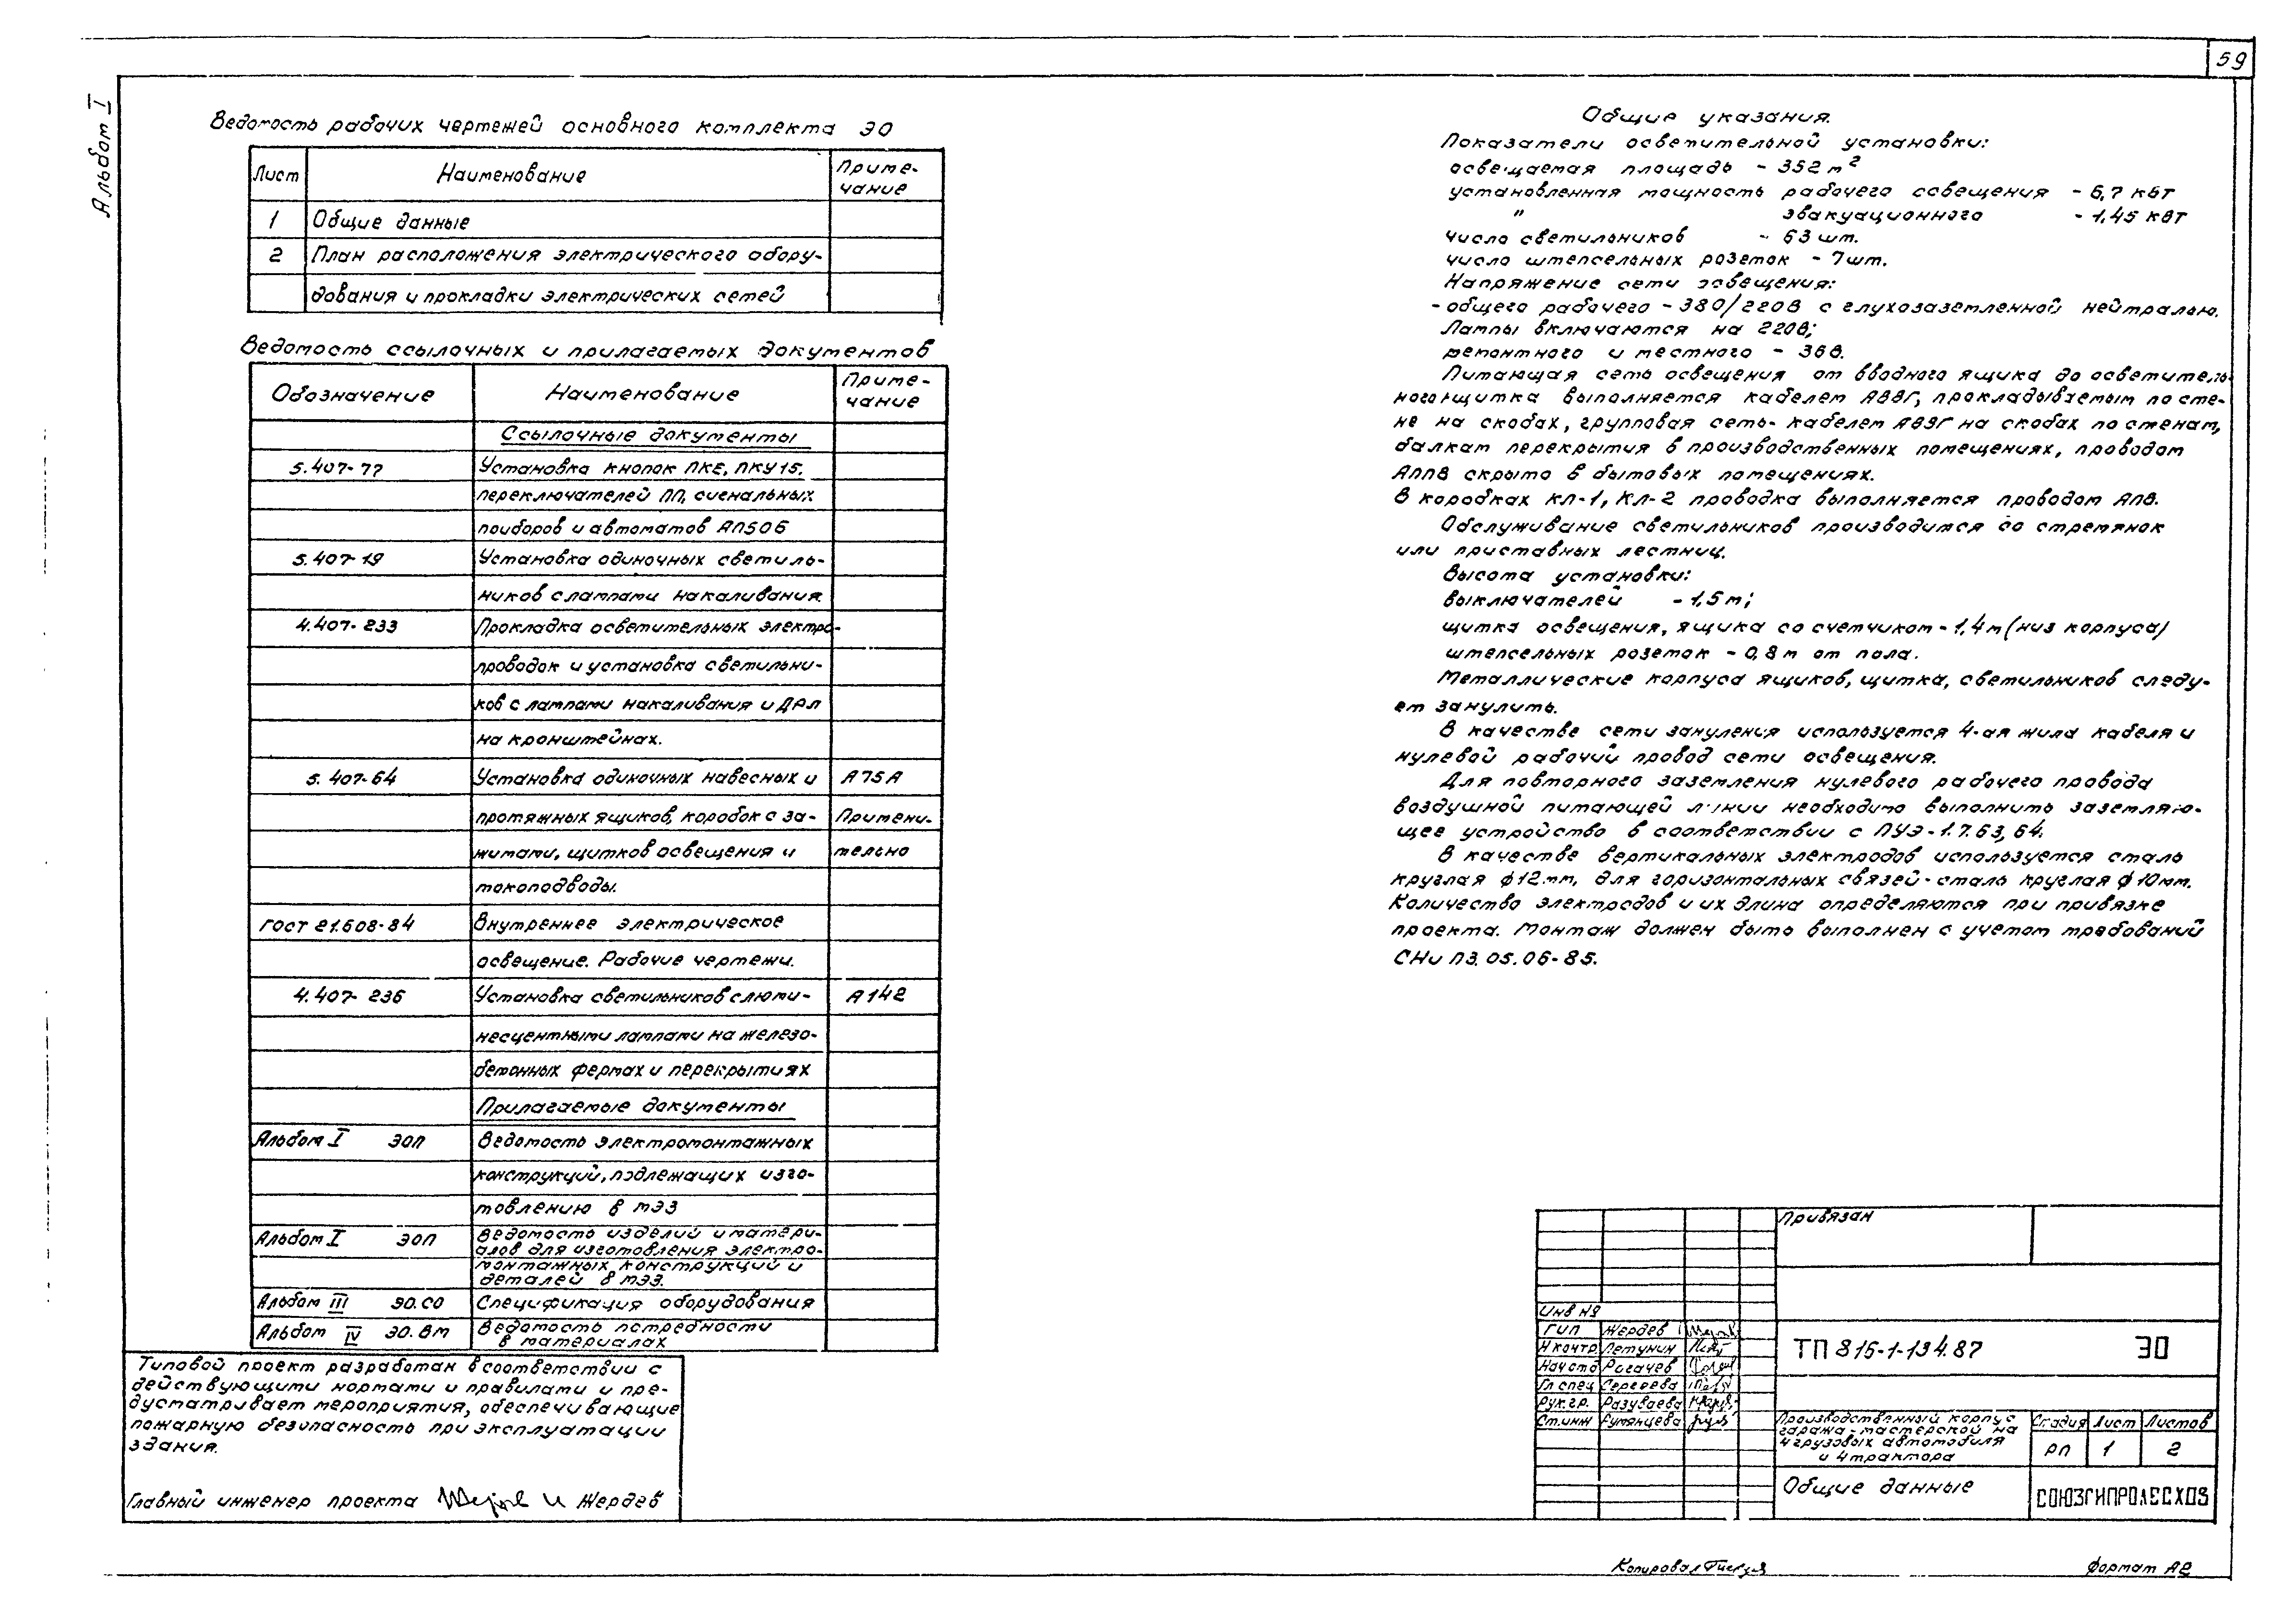 59
Альбом I
Ведомость рабочих чертежей основного комплекта ЭО
Лист Наименование Приме-
чание
1 Общие данные
2 План расположения электрического обору-
дования и прокладки электрических сетей
Ведомость ссылочных и прилагаемых документов
Обозначение Наименование Приме-
чание
Ссылочные документы
5.407-77 Установка кнопок ПКЕ, ПКУ15,
переключателей ПП, сигнальных
приборов и автоматов АП50Б
5.407-19 Установка одиночных светиль-
ников с лампами накаливания
4.407-233 Прокладка осветительных электро-
проводок и установка светильни-
ков с лампами накаливания и ДРЛ
на кронштейнах.
5.407-64 Установка одиночных навесных и А75А
протяжных ящиков, коробок с за- Примени-
жимами, щитков освещения и тельно
токоподводы.
ГОСТ 21.608-84 Внутреннее электрическое
освещение. Рабочие чертежи.
4.407-236 Установка светильников с люми- А142
несцентными лампами на железо-
бетонных фермах и перекрытиях
Прилагаемые документы
Альбом I ЭОП Ведомость электромонтажных
конструкций, подлежащих изго-
товлению в МЭЗ
Альбом I ЭОП Ведомость изделий и матери-
алов для изготовления электро-
монтажных конструкций и
деталей в МЭЗ.
Альбом III ЭО.СО Спецификация оборудования
Альбом IV ЭО.ВМ Ведомость потребности
в материалах
Типовой проект разработан в соответствии с
действующими нормами и правилами и пре-
дусматривает мероприятия, обеспечивающие
пожарную безопасность при эксплуатации
здания.
Главный инженер проекта Жердев
Общие указания.
Показатели осветительной установки:
освещаемая площадь - 352 м²
установленная мощность рабочего освещения - 6,7 кВт
" эвакуационного - 1,45 кВт
число светильников - 63 шт.
число штепсельных розеток - 7 шт.
Напряжение сети освещения:
- общего рабочего - 380/220В с глухозаземленной нейтралью.
Лампы включаются на 220В;
ремонтного и местного - 36В.
Питающая сеть освещения от вводного ящика до осветитель
ного щитка выполняется кабелем АВВГ, прокладываемым по сте-
не на скобах, групповая сеть - кабелем АВВГ на скобах по стенам,
балкам перекрытия в производственных помещениях, проводом
АППВ скрыто в бытовых помещениях.
В коробках КЛ-1, КЛ-2 проводка выполняется проводом АПВ.
Обслуживание светильников производится со стремянок
или приставных лестниц.
Высота установки:
выключателей - 1,5 м;
щитка освещения, ящика со счетчиком - 1,4 м (низ корпуса)
штепсельных розеток - 0,8 м от пола.
Металлические корпуса ящиков, щитка, светильников следу-
ет занулить.
В качестве сети зануления используется 4-ая жила кабеля и
нулевой рабочий провод сети освещения.
Для повторного заземления нулевого рабочего провода
воздушной питающей линии необходимо выполнить заземляю-
щее устройство в соответствии с ПУЭ-1.7.63, 64.
В качестве вертикальных электродов используется сталь
круглая ф 12 мм, для горизонтальных связей - сталь круглая ф 10 мм.
Количество электродов и их длина определяются при привязке
проекта. Монтаж должен быть выполнен с учетом требований
СНиП 3.05.06-85.
Привязан
Инв №
ГИП Жердев
Н контр Летунин
Нач отд Рогачев
Гл спец Сергеева
Рук. гр. Разуваева
Ст. инж Румянцева
ТП 816-1-134.87 ЭО
Производственный корпус
гаража-мастерской на
4 грузовых автомобиля
и 4 трактора
Стадия Лист Листов
РП 1 2
Общие данные
СОЮЗГИПРОЛЕСХОЗ
Копировал
Формат А2